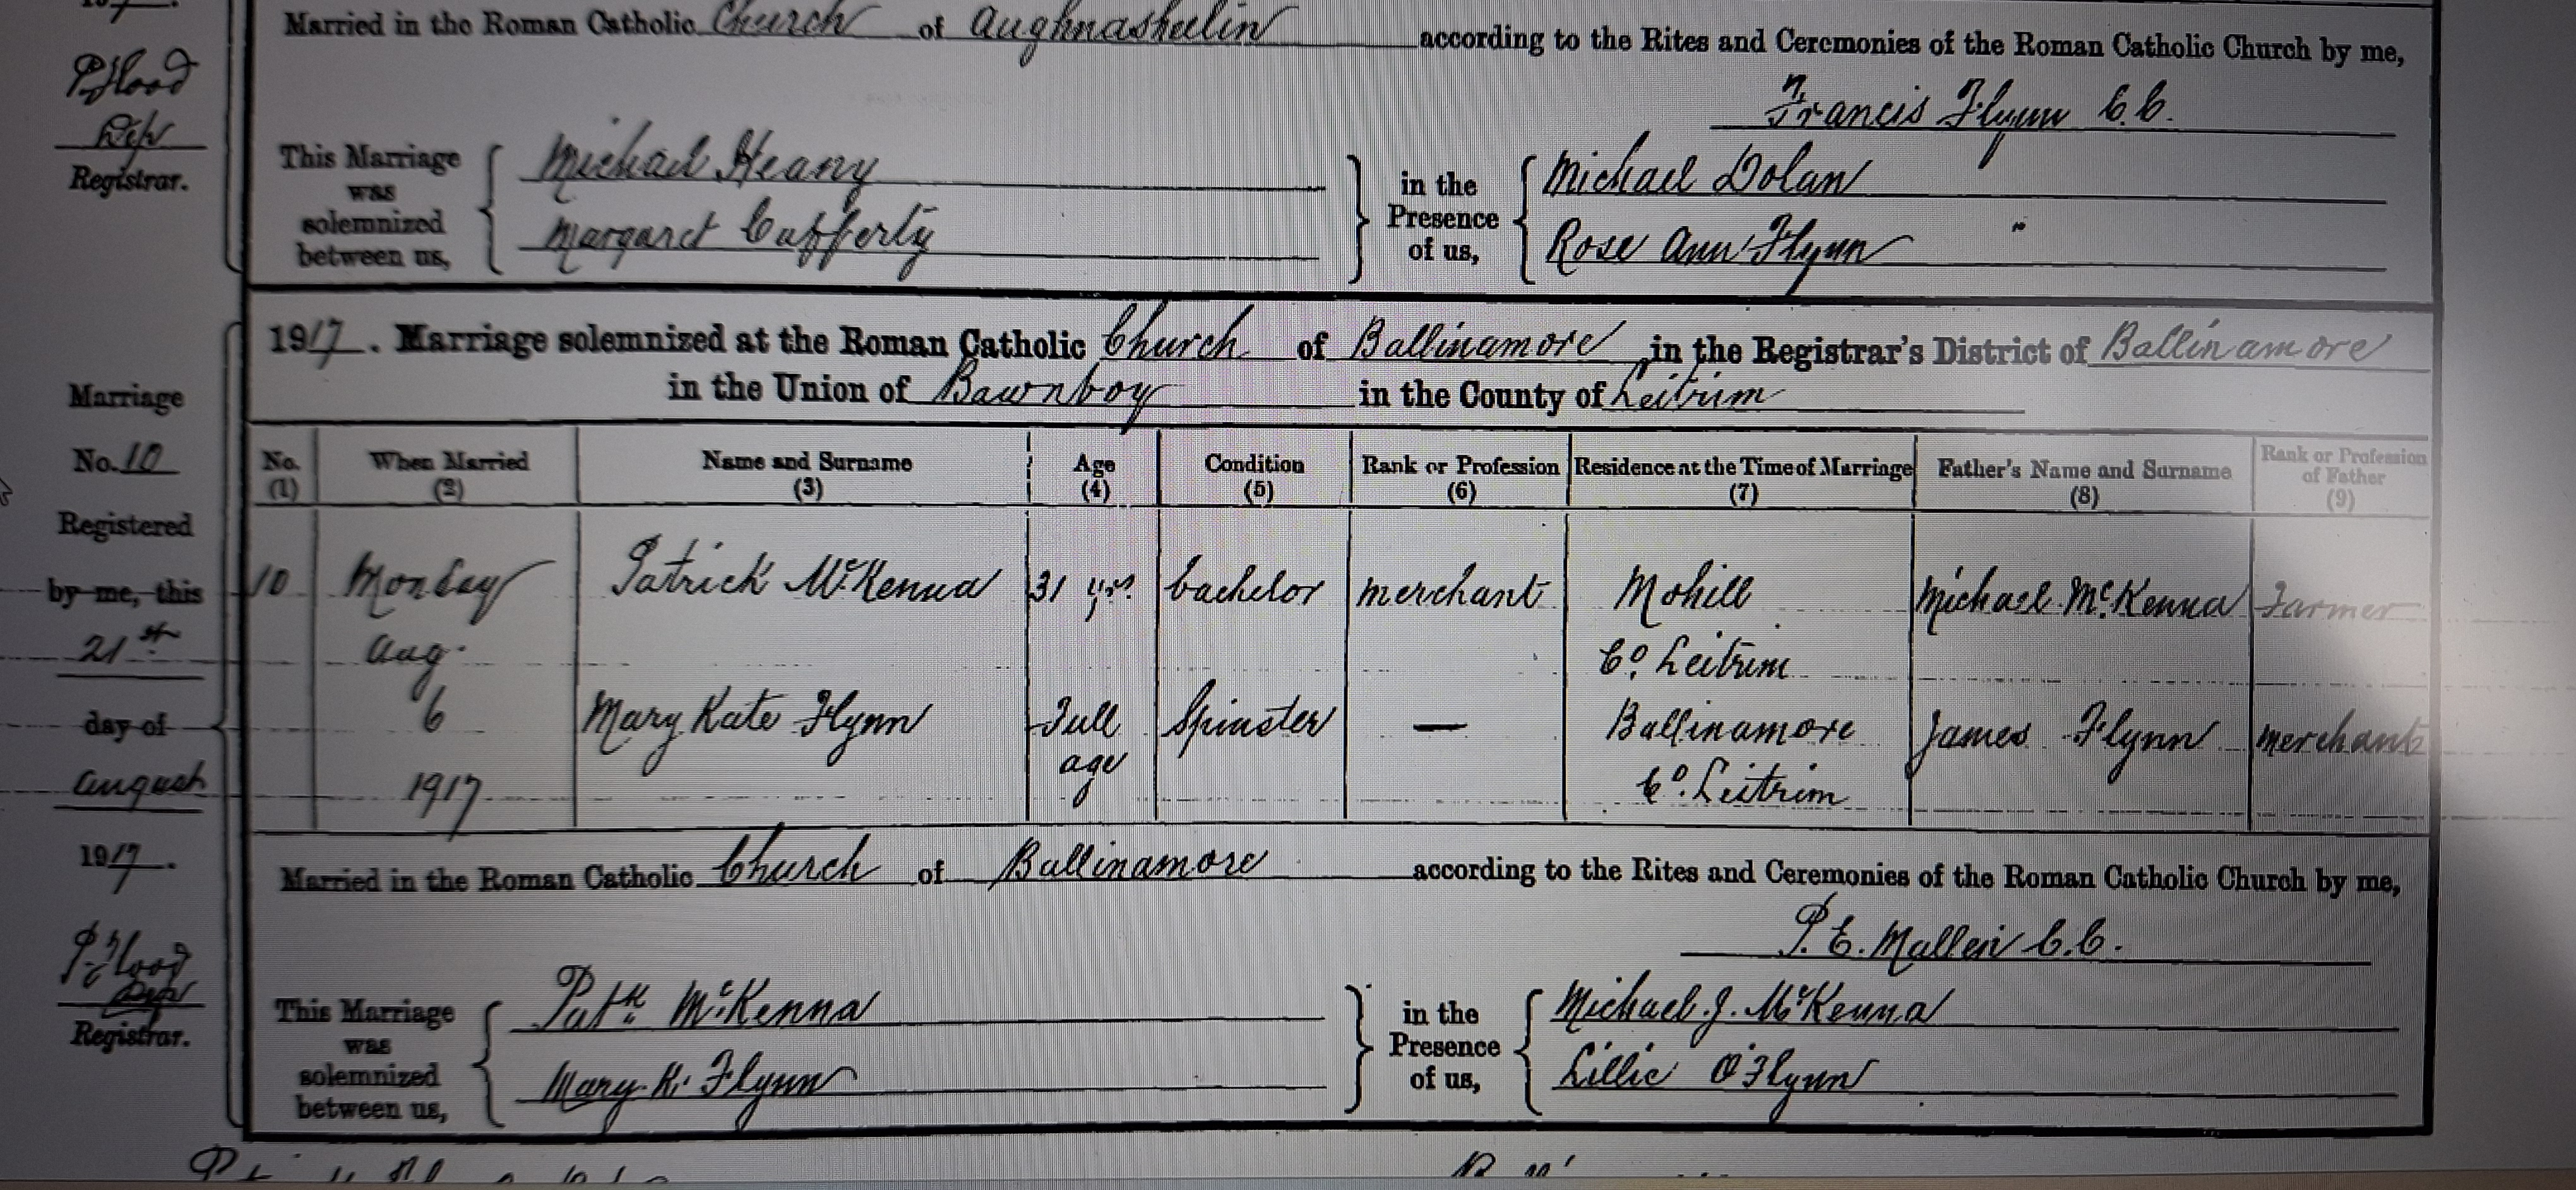 Married in the Roman Catholic Church of Aughnasheelin according to the Rites and Ceremonies of the Roman Catholic Church by me,
Francis Flynn C.C.
This Marriage was solemnized between us,
Michael Heany
Margaret Cafferty
in the Presence of us,
Michael Dolan
Rose Ann Flynn
P Flood
Dep
Registrar.
1917. Marriage solemnized at the Roman Catholic Church of Ballinamore in the Registrar's District of Ballinamore
in the Union of Bawnboy in the County of Leitrim
No. (1) When Married (2) Name and Surname (3) Age (4) Condition (5) Rank or Profession (6) Residence at the Time of Marriage (7) Father's Name and Surname (8) Rank or Profession of Father (9)
10 Monday Aug. 6 1917
Patrick McKenna 31 yrs. bachelor merchant Mohill Co. Leitrim Michael McKenna Farmer
Mary Kate Flynn Full age Spinster — Ballinamore Co. Leitrim James Flynn merchant
Marriage
No. 10
Registered
by me, this
21st
day of
August
1917.
P Flood
Dep
Registrar.
Married in the Roman Catholic Church of Ballinamore according to the Rites and Ceremonies of the Roman Catholic Church by me,
P. E. Mallen C.C.
This Marriage was solemnized between us,
Patk. McKenna
Mary K. Flynn
in the Presence of us,
Michael J. McKenna
Lillie O'Flynn